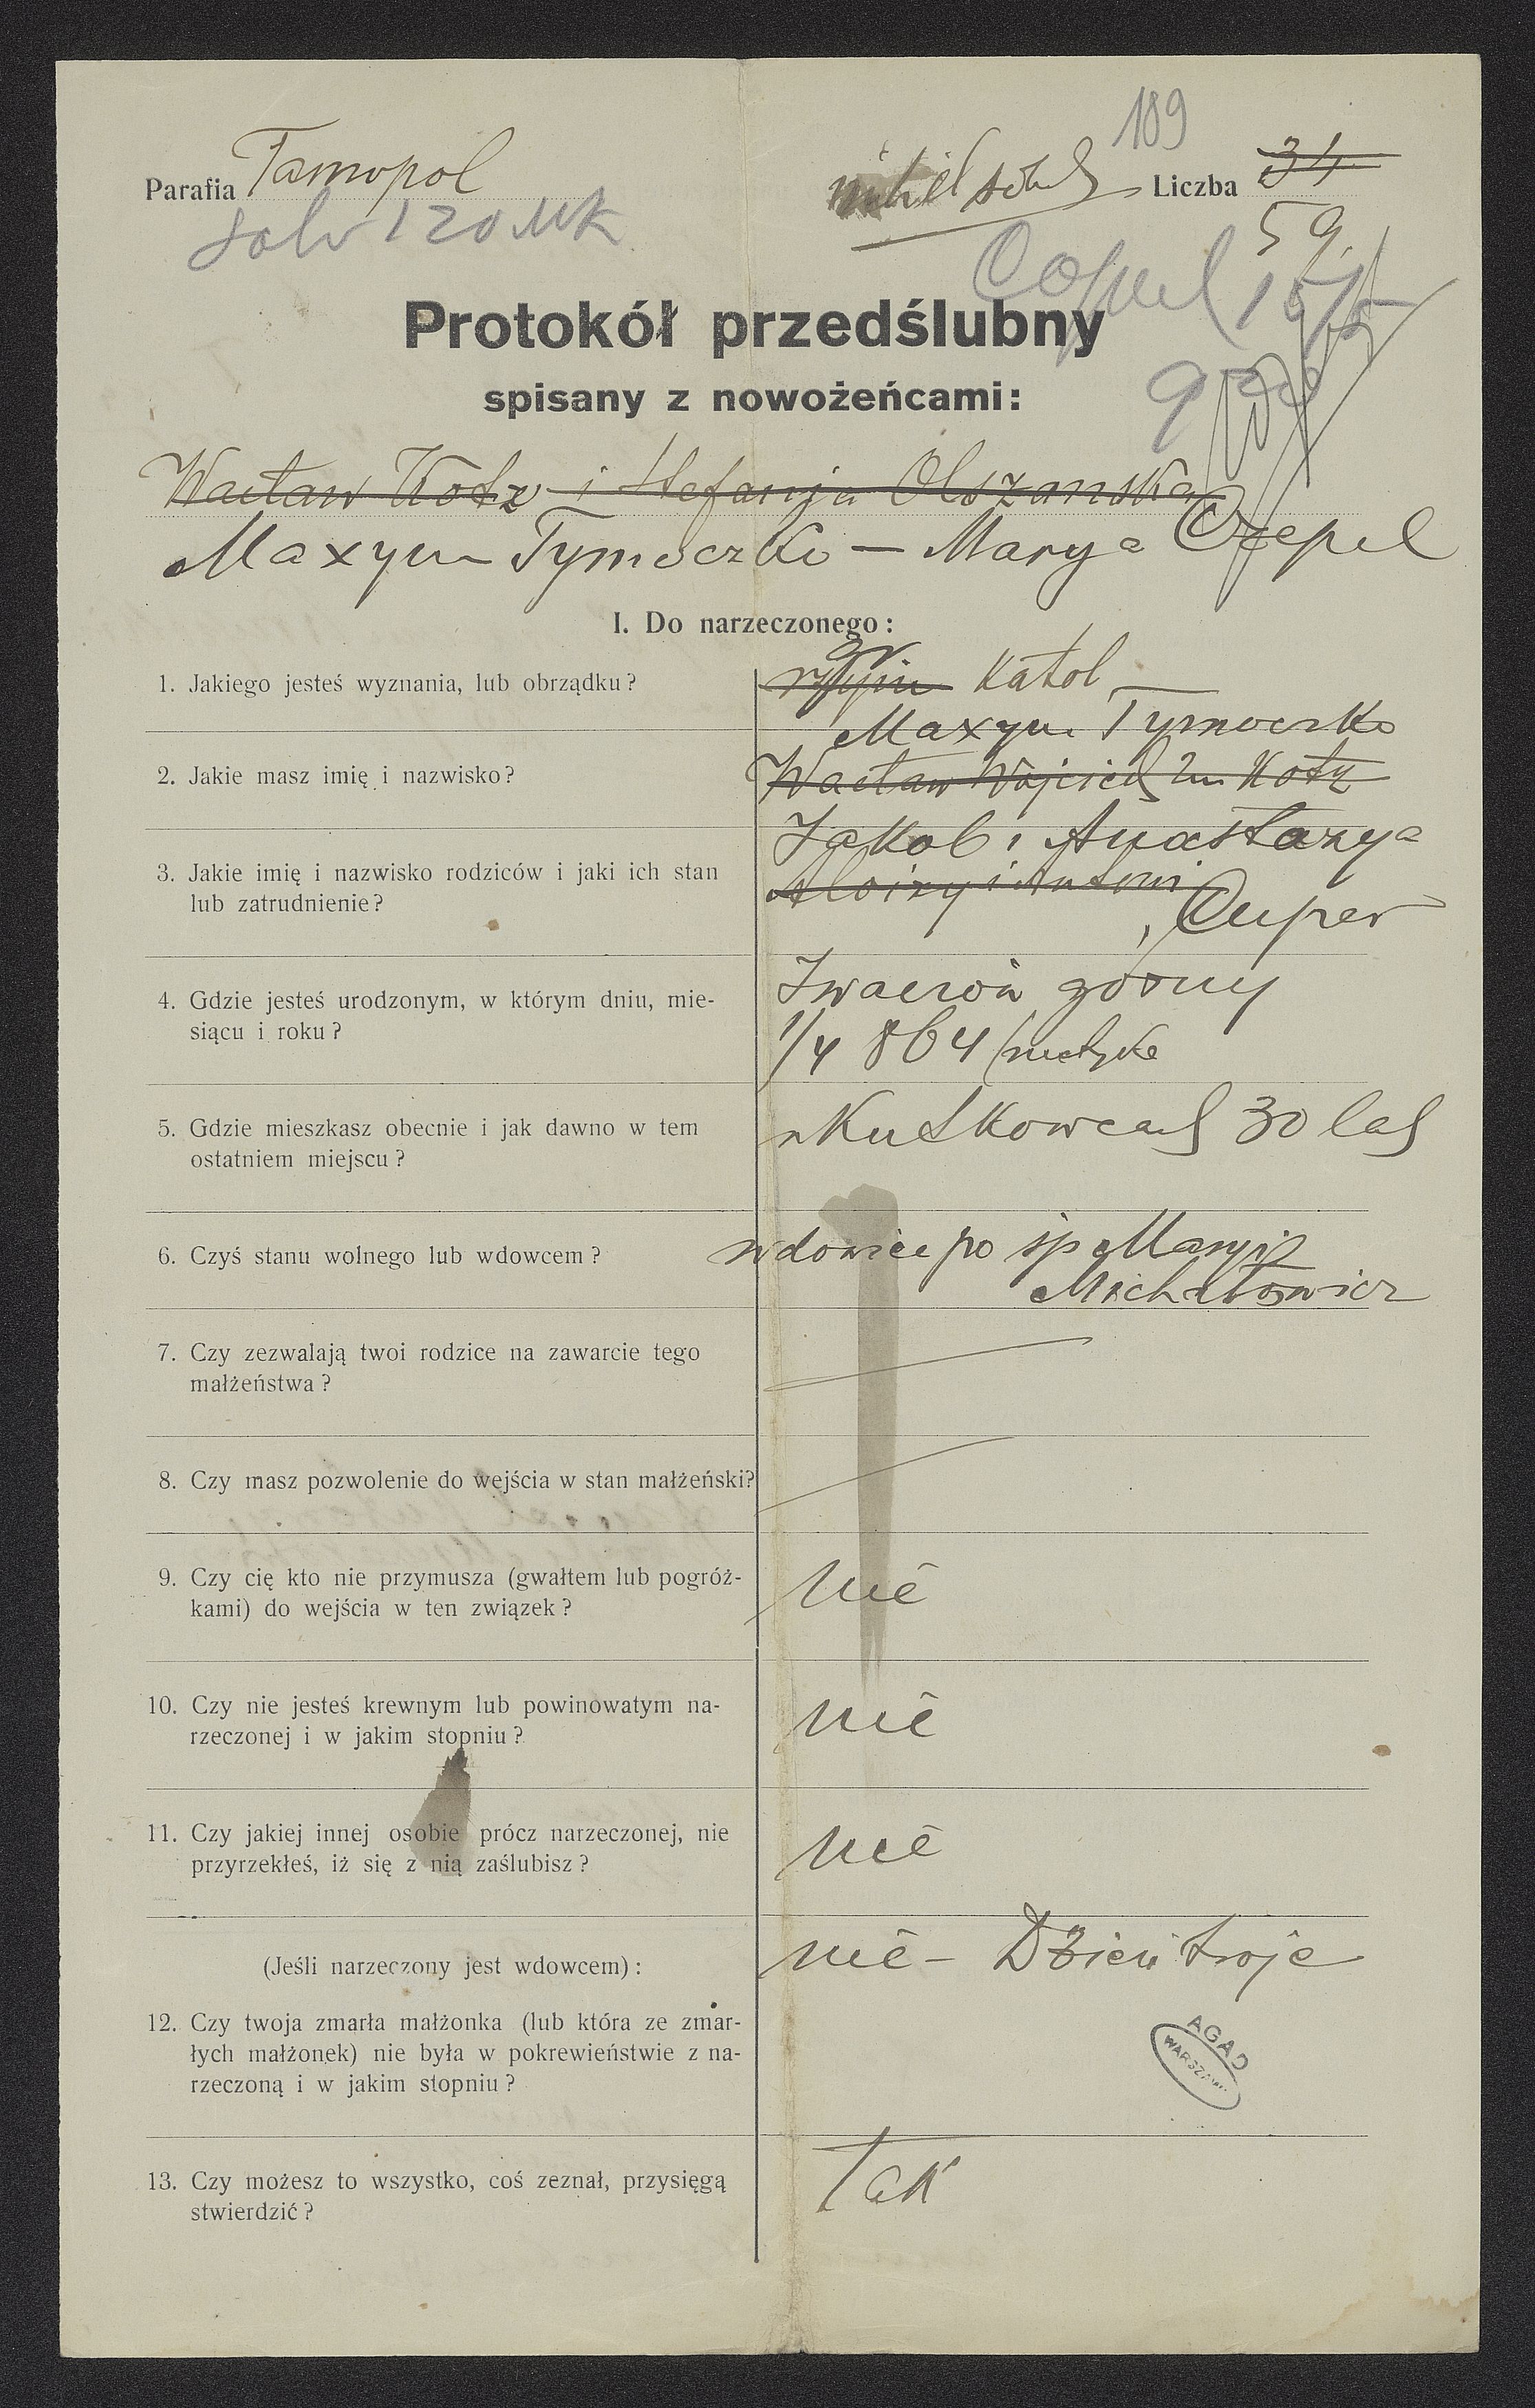 189
Parafia Tarnopol
Liczba 34
59
solv 120 Mk
15/5
Protokół przedślubny
spisany z nowożeńcami:
Wacław Kotz i Stefanja Olszanska
Maxym Tymoczko — Marya Czepel
I. Do narzeczonego:
1. Jakiego jesteś wyznania, lub obrządku?
gr
Katol
Maxym Tymoczko
2. Jakie masz imię i nazwisko?
Wacław Wojciech 2im Kotz
Jakob i Anastazya
3. Jakie imię i nazwisko rodziców i jaki ich stan
lub zatrudnienie?
Cuper
4. Gdzie jesteś urodzonym, w którym dniu, mie-
siącu i roku?
górny
1/4 864
5. Gdzie mieszkasz obecnie i jak dawno w tem
ostatniem miejscu?
Kutkowcach 30 lat
6. Czyś stanu wolnego lub wdowcem?
wdowiec po śp Maryi
Michałowicz
7. Czy zezwalają twoi rodzice na zawarcie tego
małżeństwa?
8. Czy masz pozwolenie do wejścia w stan małżeński?
9. Czy cię kto nie przymusza (gwałtem lub pogróż-
kami) do wejścia w ten związek?
nie
10. Czy nie jesteś krewnym lub powinowatym na-
rzeczonej i w jakim stopniu?
nie
11. Czy jakiej innej osobie prócz narzeczonej, nie
przyrzekłeś, iż się z nią zaślubisz?
nie
(Jeśli narzeczony jest wdowcem):
nie – Dzieci troje
12. Czy twoja zmarła małżonka (lub która ze zmar-
łych małżonek) nie była w pokrewieństwie z na-
rzeczoną i w jakim stopniu?
AGAD
WARSZAWA
13. Czy możesz to wszystko, coś zeznał, przysięgą
stwierdzić?
Tak